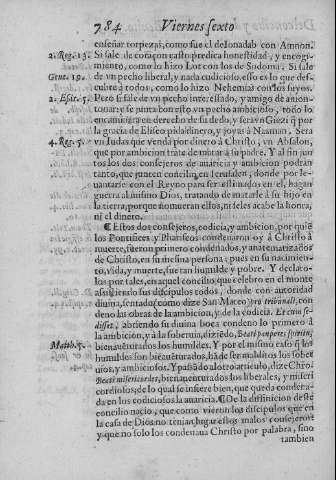 784 Viernes sexto
enseñar torpezas, como fue el de Ionadab con Amnon.
2. Reg. 13. Si sale de coraçon casto predica honestidad, y encogi-
miento, como lo hizo Lot con los de Sodoma. Si sale
Gene. 19. de vn pecho liberal, y nada cudicioso, esso es lo que des-
cubre a todos, como lo hizo Nehemias con los suyos.
2. Esdr. 5. Pero si sale de vn pecho interessado, y amigo de anion-
tonar, y se junta con esto vn pecho ambicioso, todo lo
encaminarà en derecho de su dedo, y sera vn Giezi que por
la gracia de Eliseo pida dinero, y joyas à Naaman. Sera
4. Reg. 5. vn Iudas que venda por dinero à Christo, vn Absalon,
que por ambicion trate de matar à su padre. Y al fin jun-
tos los dos consejeros de auaricia y ambicion podran
tanto, que junten concilio en Ierusalen, donde por le-
uantarse con el Reyno para ser estimados en el, hagan
guerra al mismo Dios, tratando de matarle à su hijo en
la tierra, porque no mueran ellos, ni se les acabe la honra,
ni el dinero.
¶ Estos dos consejeros, codicia, y ambicion, por quien
los Pontifices, y Phariseos condenaron oy à Christo à
muerte, fueron primero condenados, y anatematizados
de Christo, en su mesma persona; pues en su nacimien-
to, vida, y muerte, fue tan humilde y pobre. Y declaro-
los por tales, en aquel concilio que celebrò en el monte
assistiendo sus discipulos todos, donde con autoridad
diuina, sentado (como dize San Mateo) pro tribunali, con
deno las obras de la ambicion, y de la codicia. Et cum se-
disset, abriendo su diuina boca condeno lo primero à
la ambicion, y à la soberuia, diziedo, Beati pauperes spiritu,
Matth. 5. bienauenturados los humildes. Y por el mismo caso que los
humildes son bienauenturados, hà de ser malditos los sober
uios, y ambiciosos. Y passado a lo otro articulo, dize Chro.
Beati misericordes, bienauenturados los liberales, y miseri
cordiosos; de lo qual se infiere bien, que queda condena-
da en los codiciosos la auaricia. ¶ De la difinicion deste
concilio nacio, que como vieron los discipulos que en
la casa de Dios no tenian lugar estos malos consejeros
y que no solo los condenaua Christo por palabra, sino
tambien